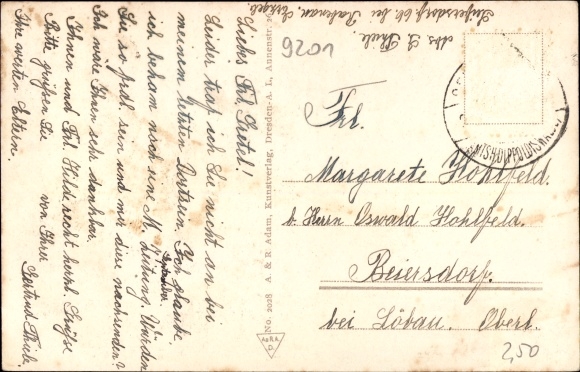 Liebes Frl. Gretel!
Leider traf ich Sie nicht an bei
meinem letzten Dortsein. Ich glaube
ich bekam noch eine M. Zeitung. Würden
Sie so frdl. sein und mir diese nachsenden?
Ich wäre Ihnen sehr dankbar.
Ihnen und Frl. Hilde recht herzl. Grüße
von Ihrer Gertrud Thiele.
Bitte grüßen Sie
Ihre werten Eltern.
No. 2028 A. & R. Adam, Kunstverlag, Dresden-A. 1, Annenstr.
A&R.A.
D.
bei Rabenau, Erzgeb.
9201
Frl.
Margarete Hohlfeld.
b. Herrn Oswald Hohlfeld.
Beiersdorf.
bei Löbau. Oberl.
2,50